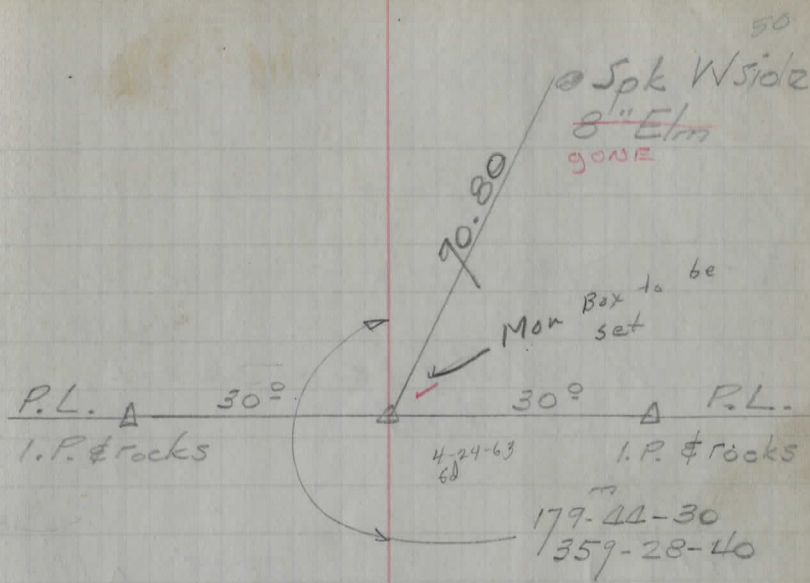 50
Spk W side
8" Elm
GONE
90.80
Mon Box to be
set
P.L. 30º 30º P.L.
I.P. & rocks I.P. & rocks
4-24-63
179-44-30
359-28-40